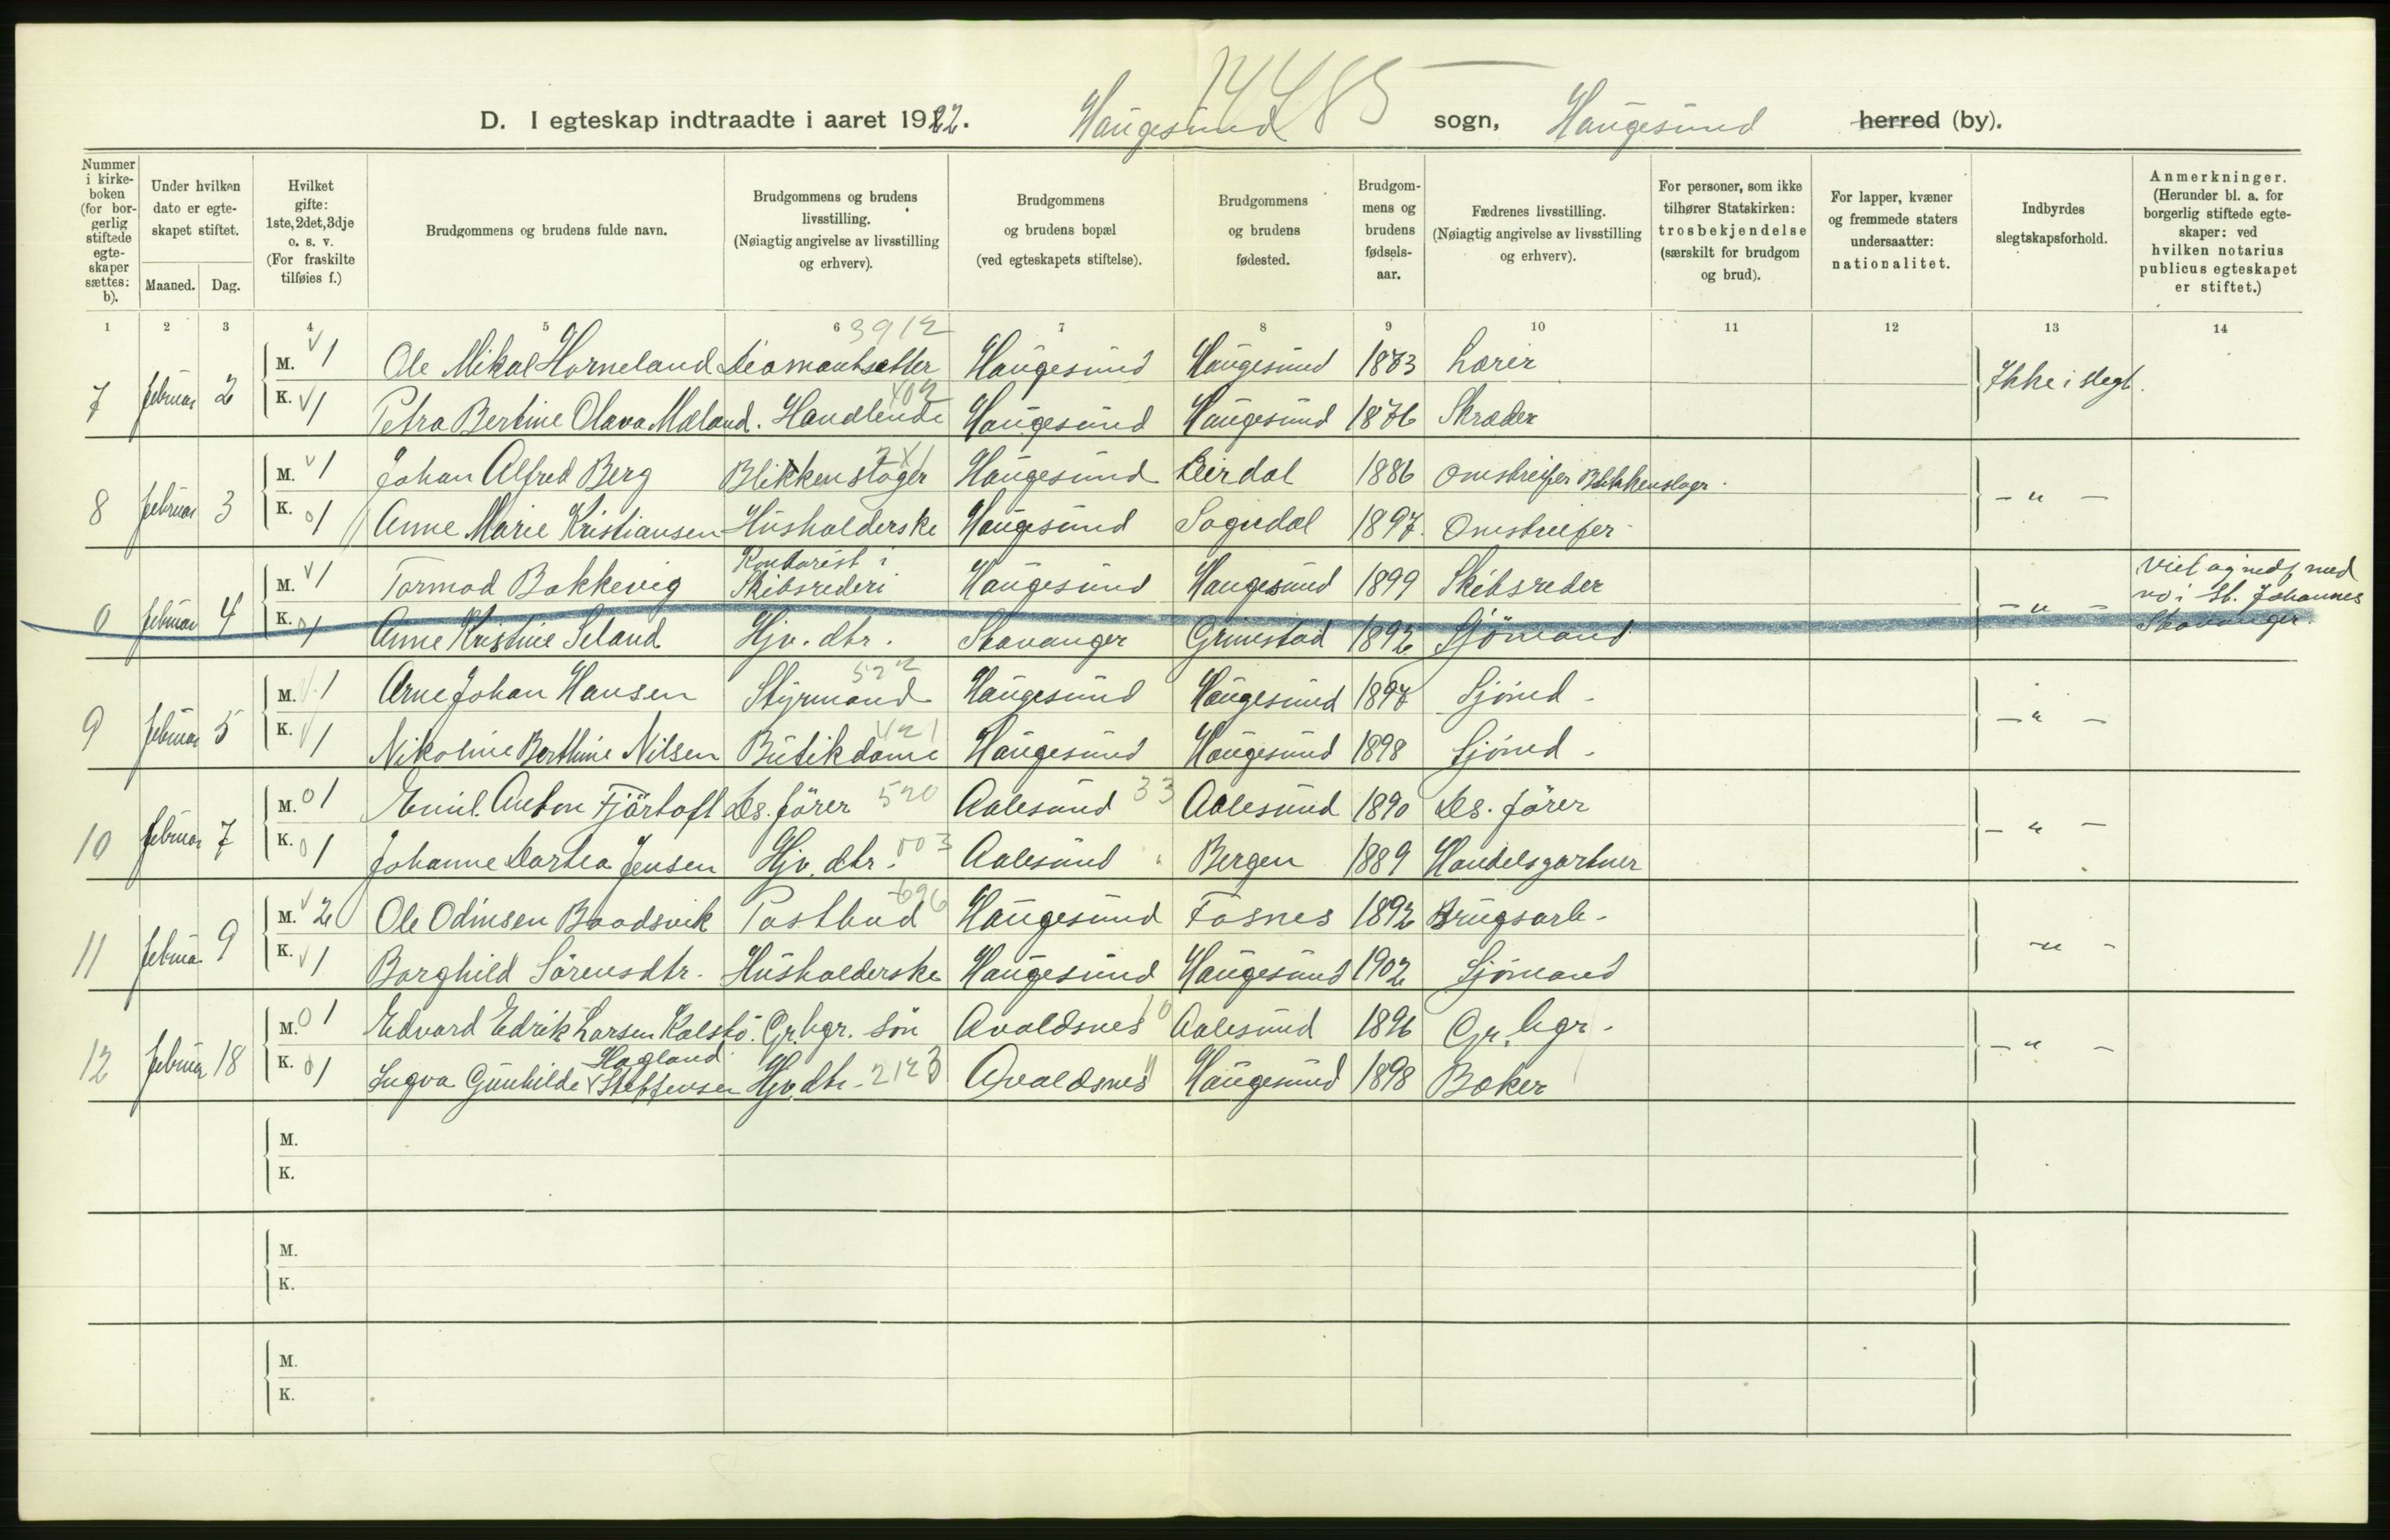 14485
D. I egteskap indtraadte i aaret 1922. Haugesund sogn, Haugesund herred (by).
Nummer i kirke-boken (for bor-gerlig stiftede egte-skaper sættes: b).
Under hvilken dato er egte-skapet stiftet.
Maaned. Dag.
Hvilket gifte: 1ste, 2det, 3dje o. s. v. (For fraskilte tilføies f.)
Brudgommens og brudens fulde navn.
Brudgommens og brudens livsstilling. (Nøiagtig angivelse av livsstilling og erhverv).
Brudgommens og brudens bopæl (ved egteskapets stiftelse).
Brudgommens og brudens fødested.
Brudgom-mens og brudens fødsels-aar.
Fædrenes livsstilling. (Nøiagtig angivelse av livsstilling og erhverv).
For personer, som ikke tilhører Statskirken: trosbekjendelse (særskilt for brudgom og brud).
For lapper, kvæner og fremmede staters undersaatter: nationalitet.
Indbyrdes slegtskapsforhold.
Anmerkninger. (Herunder bl. a. for borgerlig stiftede egte-skaper: ved hvilken notarius publicus egteskapet er stiftet.)
1 2 3 4 5 6 7 8 9 10 11 12 13 14
3912
7 Februar 2 M. 1 Ole Mikal Horneland Diamantsetter Haugesund Haugesund 1873 Lærer Ikke i slegt.
K. 1 Petra Bertine Olava Mæland. Handlende Haugesund Haugesund 1876 Skræder
8 Februar 3 M. 1 Johan Alfred Berg Blikkenslager Haugesund Leirdal 1886 Omstreifer Blikkenslager. - " -
K. 0 1 Anne Marie Kristiansen Husholderske Haugesund Sogndal 1897. Omstreifer
0 Februar 4 M. 1 Tormod Bakkevig Kontorist i Skibsrederi Haugesund Haugesund 1899 Skibsreder - " - Viet og nedf. med no i St. Johannes Stavanger.
K. 0 1 Anne Kristine Seland Hjv. dtr. Stavanger Grimstad 1892 Sjömand
9 Februar 5 M. 1 Arne Johan Hansen Styrmand 522 Haugesund Haugesund 1897 Sjömd. - " -
K. 1 Nikoline Berthine Nilsen Butikdame 421 Haugesund Haugesund 1898 Sjömd.
10 Februar 7 M. 0 1 Emil Anton Fjörtoft Ds. förer 520 Aalesund 33 Aalesund 1890 Ds. förer - " -
K. 0 1 Johanne Dortea Jensen Hjv. dtr. 003 Aalesund " Bergen 1889 Handelsgartner
11 Februar 9 M. 2 Ole Odinsen Baadsvik Postbud 696 Haugesund Fosnes 1892 Brugsarb. - " -
K. 1 Borghild Sörensdtr. Husholderske Haugesund Haugesund 1902 Sjömand
12 Februar 18 M. 0 1 Edvard Edrik Larsen Kalstö. Gr. bgr. sön Avaldsnes 10 Aalesund 1896 Gr. bgr. - " -
Hagland
K. 0 1 Ingva Gunhilde Steffensen Hjv. dtr. 2123 Avaldsnes " Haugesund 1898 Baker
M.
K.
M.
K.
M.
K.